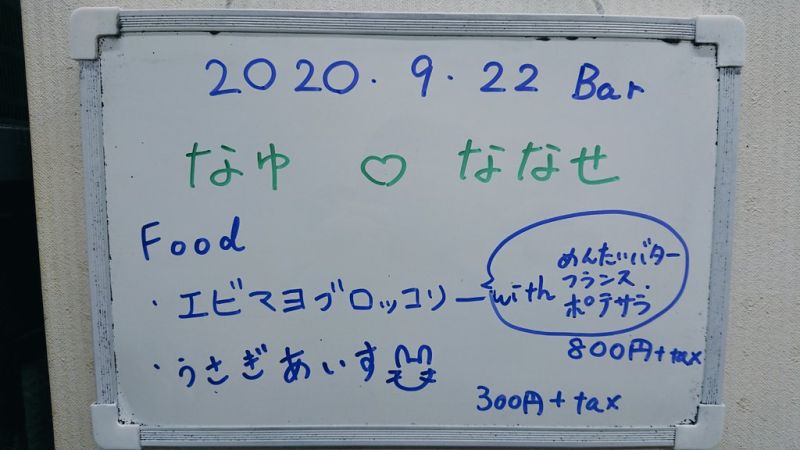 2020.9.22 Bar
なゆ ♡ ななせ
Food
・エビマヨブロッコリー with めんたいバター
フランス.
ポテサラ
800円+tax
・うさぎあいす
300円+tax